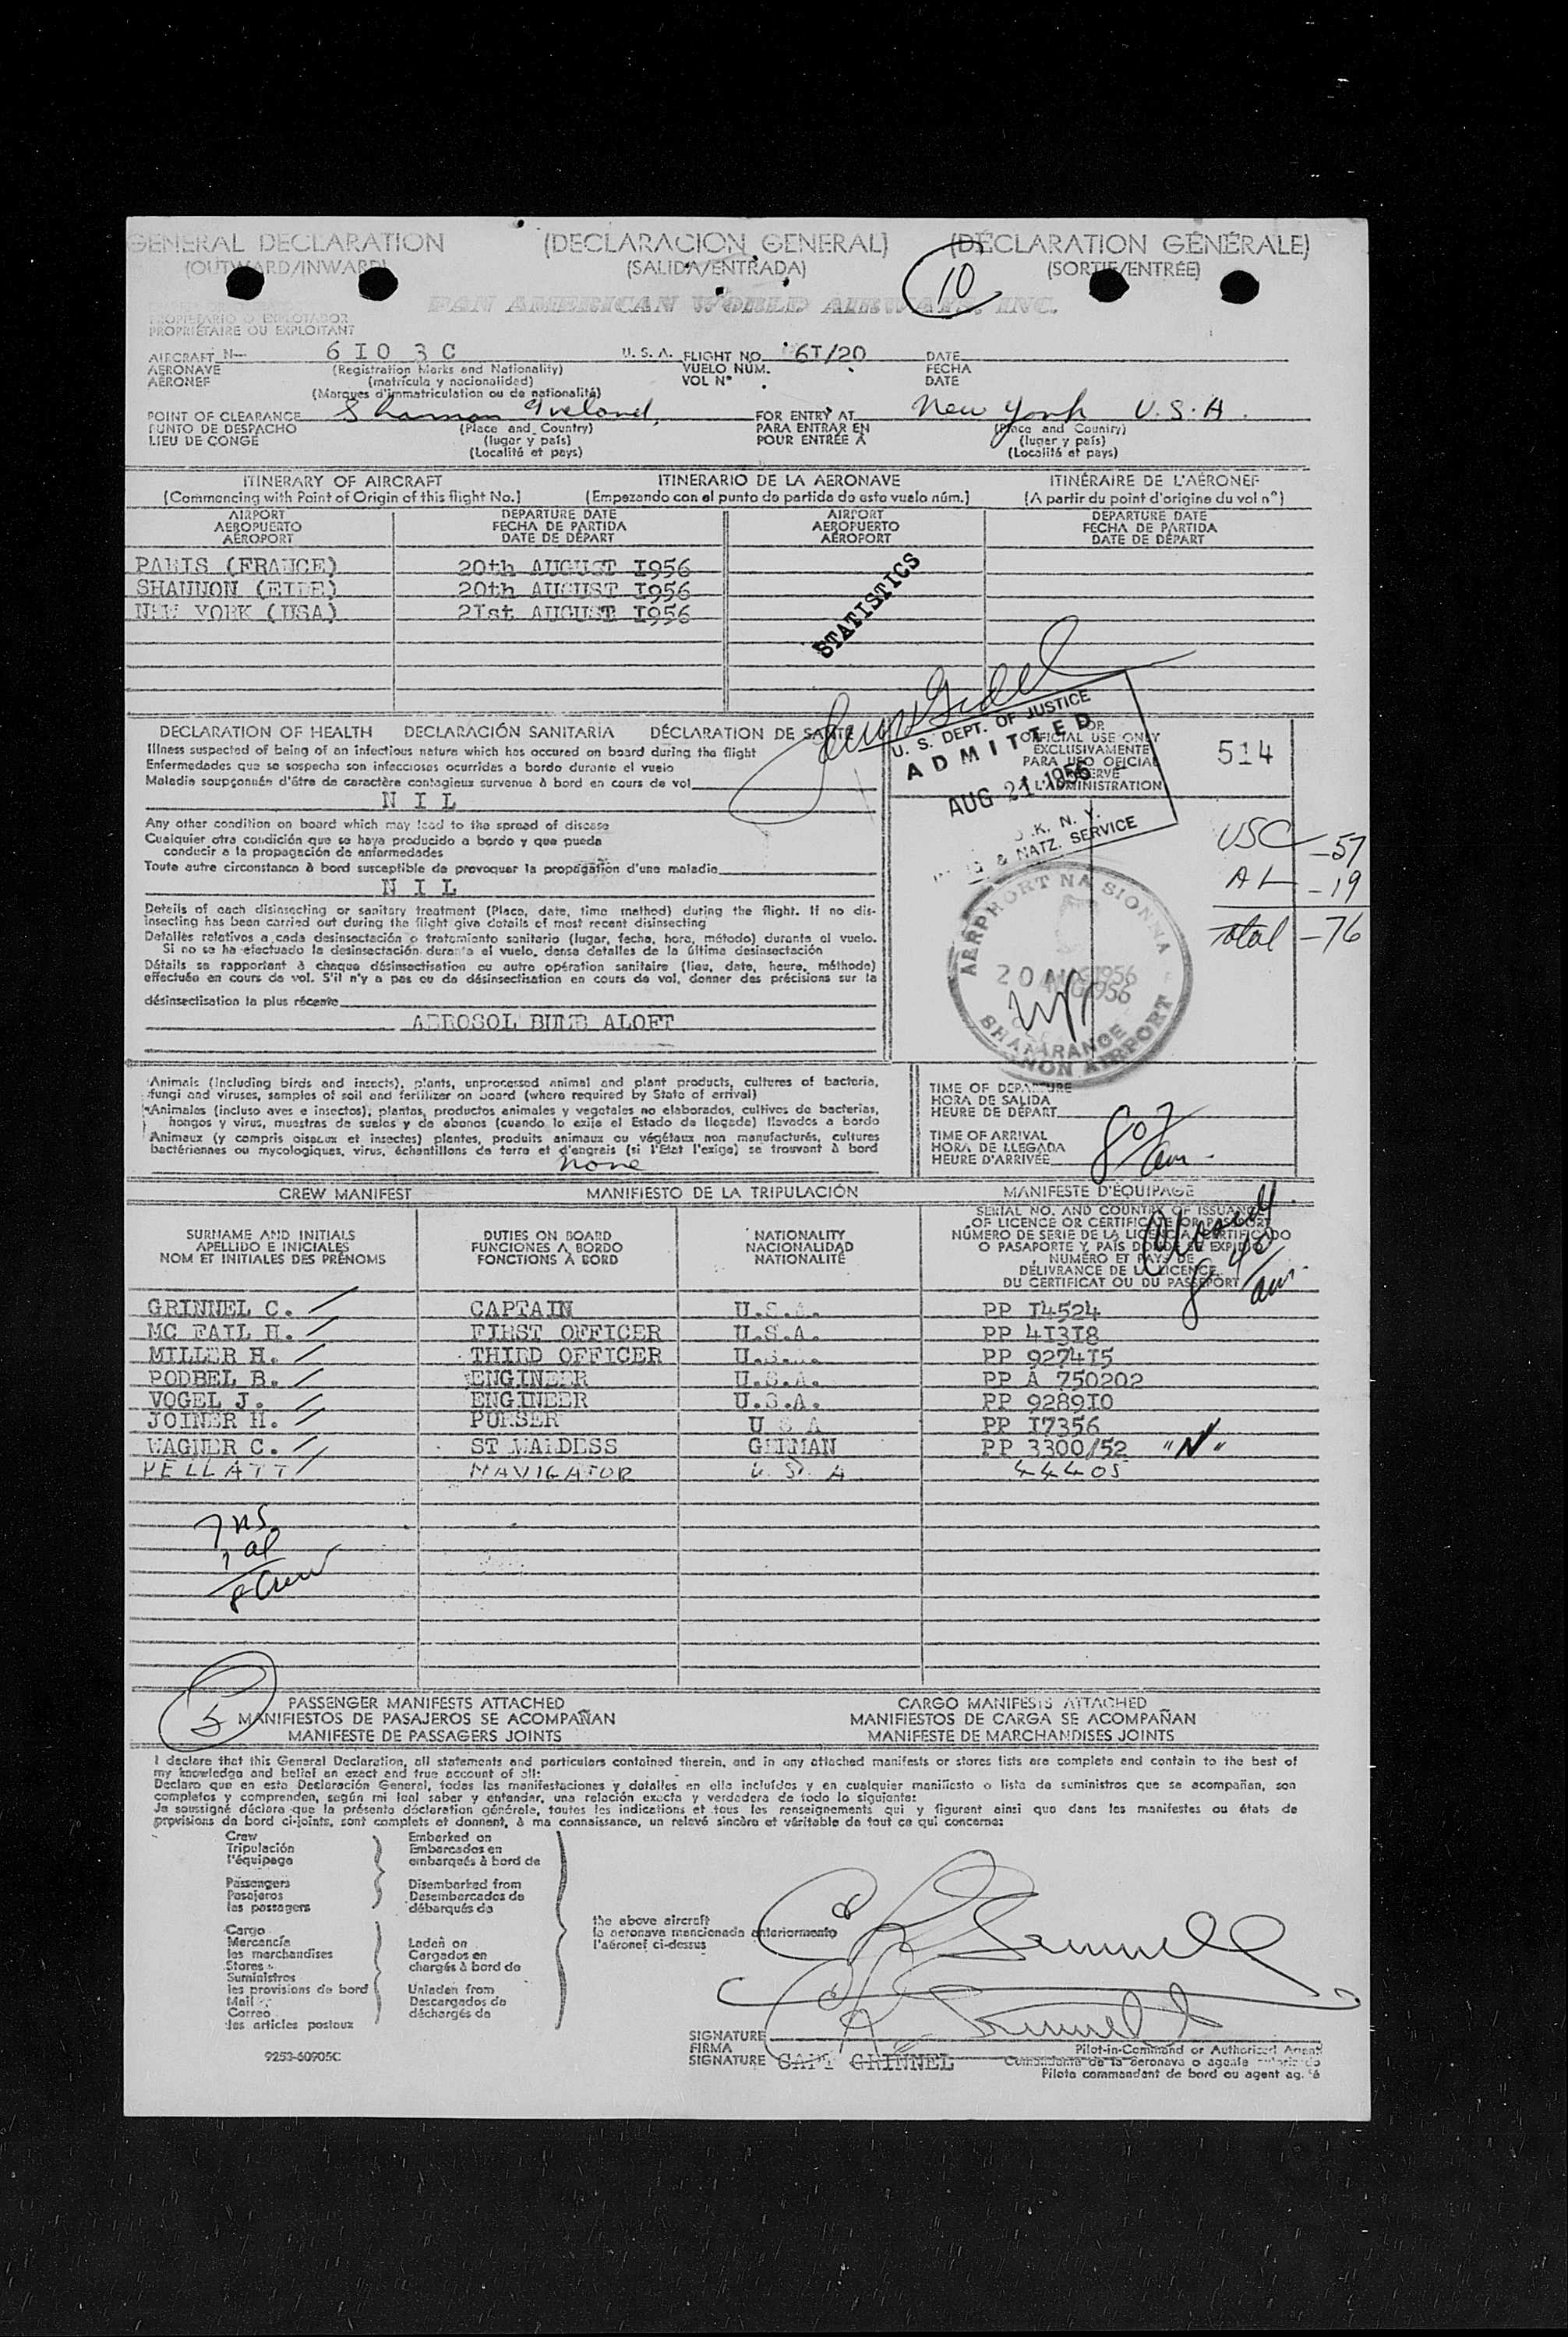 GENERAL DECLARATION (DECLARACION GENERAL) (DÉCLARATION GÉNÉRALE)
(OUTWARD/INWARD) (SALIDA/ENTRADA) (SORTIE/ENTRÉE)
10
PAN AMERICAN WORLD AIRWAYS, INC.
PROPIETARIO O EXPLOTADOR
PROPRIÉTAIRE OU EXPLOITANT
AIRCRAFT N— 6 I0 3 C U. S. A. FLIGHT NO. 6T/20 DATE
AERONAVE (Registration Marks and Nationality) VUELO NÚM. FECHA
AÉRONEF (matrícula y nacionalidad) VOL Nº DATE
(Marques d'immatriculation ou de nationalité)
POINT OF CLEARANCE Shannon Ireland, FOR ENTRY AT New York U.S.A.
PUNTO DE DESPACHO (Place and Country) PARA ENTRAR EN (Place and Country)
LIEU DE CONGÉ (lugar y país) POUR ENTRÉE À (lugar y país)
(Localité et pays) (Localité et pays)
ITINERARY OF AIRCRAFT ITINERARIO DE LA AERONAVE ITINÉRAIRE DE L'AÉRONEF
(Commencing with Point of Origin of this flight No.) (Empezando con el punto de partida de este vuelo núm.) (A partir du point d'origine du vol nº)
AIRPORT DEPARTURE DATE AIRPORT DEPARTURE DATE
AEROPUERTO FECHA DE PARTIDA AEROPUERTO FECHA DE PARTIDA
AÉROPORT DATE DE DÉPART AÉROPORT DATE DE DÉPART
PARIS (FRANCE) 20th AUGUST I956
SHANNON (EIRE) 20th AUGUST I956
NEW YORK (USA) 2Ist AUGUST I956
STATISTICS
DECLARATION OF HEALTH DECLARACIÓN SANITARIA DÉCLARATION DE SANTÉ
Illness suspected of being of an infectious nature which has occured on board during the flight
Enfermedades que se sospecha son infecciosas ocurridas a bordo durante el vuelo
Maladie soupçonnée d'être de caractère contagieux survenue à bord en cours de vol
N I L
FOR
OFFICIAL USE ONLY
EXCLUSIVAMENTE
PARA USO OFICIAL
RÉSERVÉ
À L'ADMINISTRATION
514
U. S. DEPT. OF JUSTICE
ADMITTED
AUG 21 1956
N. Y.
& NATZ. SERVICE
USC —57
AL —19
Total —76
Any other condition on board which may lead to the spread of disease
Cualquier otra condición que se haya producido a bordo y que pueda
conducir a la propagación de enfermedades
Toute autre circonstance à bord susceptible de provoquer la propagation d'une maladie
N I L
Details of each disinsecting or sanitary treatment (Place, date, time method) during the flight. If no dis-
insecting has been carried out during the flight give details of most recent disinsecting
Detalles relativos a cada desinsectación o tratamiento sanitario (lugar, fecha, hora, método) durante el vuelo.
Si no se ha efectuado la desinsectación durante el vuelo, dense detalles de la última desinsectación
Détails se rapportant à chaque désinsectisation ou autre opération sanitaire (lieu, date, heure, méthode)
effectuée en cours de vol. S'il n'y a pas eu de désinsectisation en cours de vol, donner des précisions sur la
désinsectisation la plus récente
AEROSOL BULB ALOFT
AERPHORT NA SIONNA
20 AUG 1956
SHANNON AIRPORT
Animals (including birds and insects), plants, unprocessed animal and plant products, cultures of bacteria,
fungi and viruses, samples of soil and fertilizer on board (where required by State of arrival)
Animales (incluso aves e insectos), plantas, productos animales y vegetales no elaborados, cultivos de bacterias,
hongos y virus, muestras de suelos y de abonos (cuando lo exija el Estado de llegada) llevados a bordo
Animaux (y compris oiseaux et insectes) plantes, produits animaux ou végétaux non manufacturés, cultures
bactériennes ou mycologiques, virus, échantillons de terre et d'engrais (si l'Etat l'exige) se trouvant à bord
None
TIME OF DEPARTURE
HORA DE SALIDA
HEURE DE DÉPART
TIME OF ARRIVAL
HORA DE LLEGADA
HEURE D'ARRIVÉE
807 am.
CREW MANIFEST MANIFIESTO DE LA TRIPULACIÓN MANIFESTE D'ÉQUIPAGE
SURNAME AND INITIALS DUTIES ON BOARD NATIONALITY
APELLIDO E INICIALES FUNCIONES A BORDO NACIONALIDAD
NOM ET INITIALES DES PRÉNOMS FONCTIONS À BORD NATIONALITÉ
SERIAL NO. AND COUNTRY OF ISSUANCE
OF LICENCE OR CERTIFICATE OR PASSPORT
NÚMERO DE SERIE DE LA LICENCIA, CERTIFICADO
O PASAPORTE Y PAÍS DONDE SE EXPIDIÓ
NUMÉRO ET PAYS DE
DÉLIVRANCE DE LA LICENCE,
DU CERTIFICAT OU DU PASSEPORT
8 40 am.
GRINNEL C. CAPTAIN U.S.A. PP I4524
MC FAIL H. FIRST OFFICER U.S.A. PP 4I3I8
MILLER H. THIRD OFFICER U.S.A. PP 9274I5
PODBEL B. ENGINEER U.S.A. PP A 750202
VOGEL J. ENGINEER U.S.A. PP 9289I0
JOINER H. PURSER U S A PP I7356
WAGNER C. STWARDESS GERMAN PP 3300/52 "N"
PELLATT NAVIGATOR U.S.A 44405
7 us
1 al
8 Crew
5
PASSENGER MANIFESTS ATTACHED CARGO MANIFESTS ATTACHED
MANIFIESTOS DE PASAJEROS SE ACOMPAÑAN MANIFIESTOS DE CARGA SE ACOMPAÑAN
MANIFESTE DE PASSAGERS JOINTS MANIFESTE DE MARCHANDISES JOINTS
I declare that this General Declaration, all statements and particulars contained therein, and in any attached manifests or stores lists are complete and contain to the best of
my knowledge and belief an exact and true account of all:
Declaro que en esta Declaración General, todas las manifestaciones y detalles en ella incluídos y en cualquier manifiesto o lista de suministros que se acompañan, son
completos y comprenden, según mi leal saber y entender, una relación exacta y verdadera de todo lo siguiente:
Je soussigné déclare que la présente déclaration générale, toutes les indications et tous les renseignements qui y figurent ainsi que dans les manifestes ou états de
provisions de bord ci-joints, sont complets et donnent, à ma connaissance, un relevé sincère et véritable de tout ce qui concerne:
Crew Embarked on
Tripulación Embarcados en
l'équipage embarqués à bord de
Passengers Disembarked from
Pasajeros Desembarcados de
les passagers débarqués de
the above aircraft
la aeronave mencionada anteriormente
l'aéronef ci-dessus
Cargo
Mercancía Laden on
les marchandises Cargados en
Stores chargés à bord de
Suministros
les provisions de bord Unladen from
Mail Descargados de
Correo déchargés de
les articles postaux
SIGNATURE
FIRMA Pilot-in-Command or Authorized Agent
SIGNATURE CAPT GRINNEL Comandante de la aeronave o agente autorizado
9253-60905C Pilote commandant de bord ou agent agréé